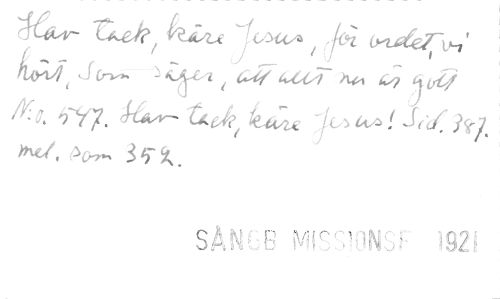 Hav tack, käre Jesus, för ordet, vi
hört, Som säger, att allt nu är gott
N:o. 547. Hav tack, käre Jesus! Sid. 387.
mel. som 352.
SÅNGB MISSIONSF 1921